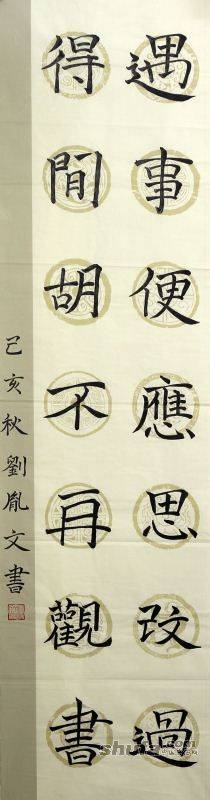 遇事便應思改過
得間胡不再觀書
己亥秋劉胤文書